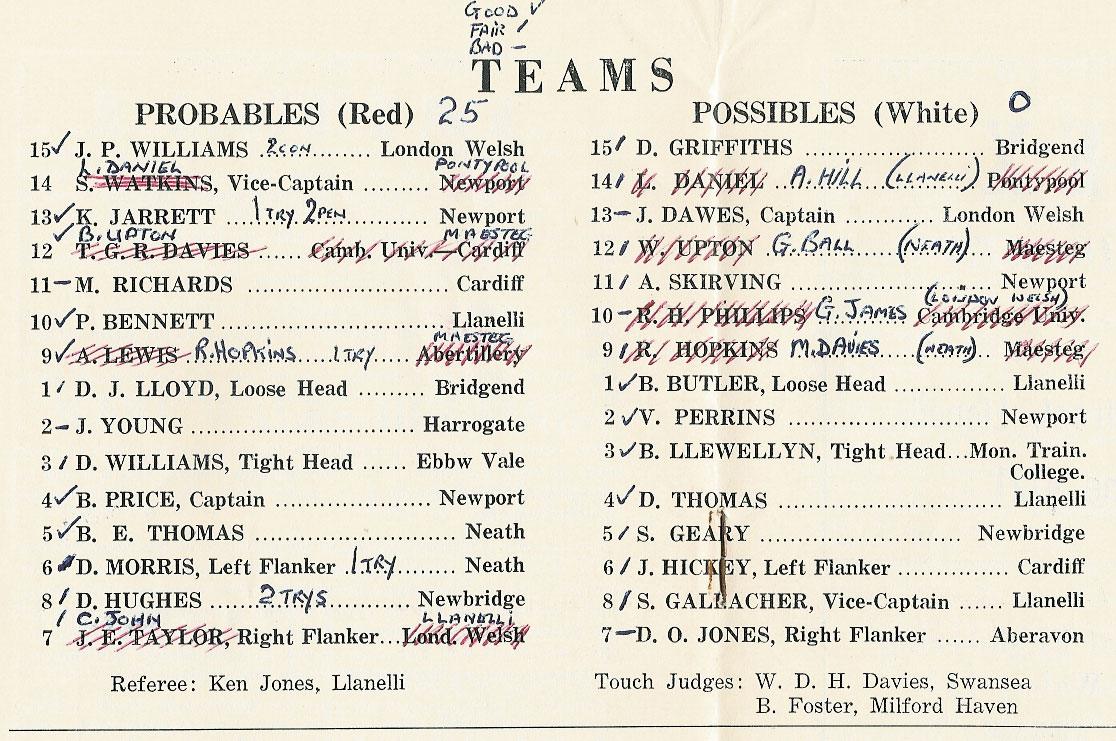 GOOD ✓
FAIR /
BAD –
TEAMS
PROBABLES (Red) 25
15 ✓ J. P. WILLIAMS 2 CON ........ London Welsh
L. DANIEL PONTYPOOL
14 S. WATKINS, Vice-Captain ......... Newport
13 ✓ K. JARRETT ...1 TRY. 2 PEN ............ Newport
✓ B. UPTON MAESTEG
12 T. G. R. DAVIES ...... Camb. Univ.—Cardiff
11 – M. RICHARDS .............................. Cardiff
10 ✓ P. BENNETT .............................. Llanelli
MAESTEG
9 ✓ A. LEWIS R. HOPKINS 1 TRY Abertillery
1 / D. J. LLOYD, Loose Head ......... Bridgend
2 – J. YOUNG .............................. Harrogate
3 / D. WILLIAMS, Tight Head ...... Ebbw Vale
4 ✓ B. PRICE, Captain ..................... Newport
5 ✓ B. E. THOMAS .............................. Neath
6 D. MORRIS, Left Flanker 1 TRY ........ Neath
8 / D. HUGHES ......2 TRYS............ Newbridge
/ C. JOHN LLANELLI
7 J. E. TAYLOR, Right Flanker...Lond. Welsh
Referee: Ken Jones, Llanelli
POSSIBLES (White) 0
15 / D. GRIFFITHS ........................ Bridgend
14 / L. DANIEL A. HILL (LLANELLI) Pontypool
13 – J. DAWES, Captain ............ London Welsh
12 / W. UPTON G. BALL (NEATH) Maesteg
11 / A. SKIRVING ........................ Newport
(LONDON WELSH)
10 – R. H. PHILLIPS G. JAMES Cambridge Univ.
9 / R. HOPKINS M. DAVIES (NEATH) Maesteg
1 ✓ B. BUTLER, Loose Head ............... Llanelli
2 ✓ V. PERRINS .............................. Newport
3 ✓ B. LLEWELLYN, Tight Head...Mon. Train.
College.
4 ✓ D. THOMAS .............................. Llanelli
5 / S. GEARY .............................. Newbridge
6 / J. HICKEY, Left Flanker ............... Cardiff
8 / S. GALLACHER, Vice-Captain ...... Llanelli
7 – D. O. JONES, Right Flanker ...... Aberavon
Touch Judges: W. D. H. Davies, Swansea
B. Foster, Milford Haven